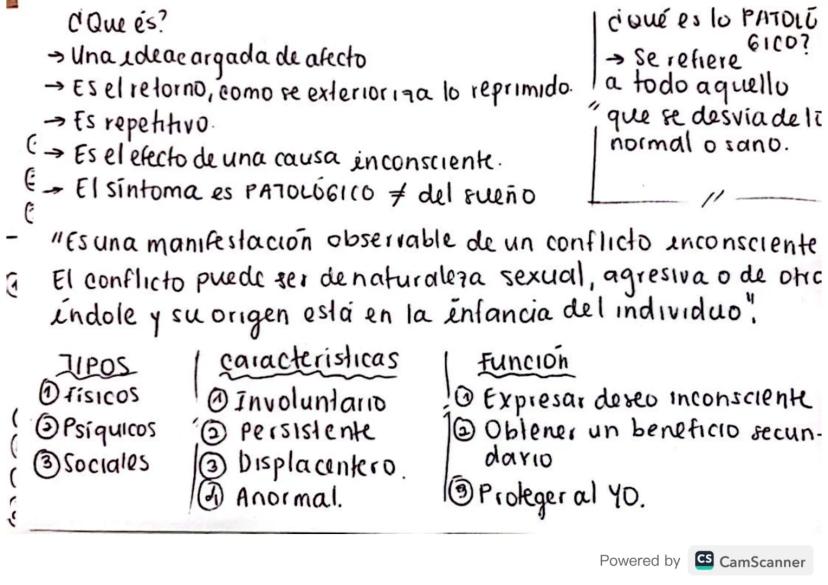 ¿Que és?
→ Una idea cargada de afecto
→ Es el retorno, como se exterioriza lo reprimido.
→ Es repetitivo.
→ Es el efecto de una causa inconsciente.
→ El síntoma es PATOLÓGICO ≠ del sueño
¿qué es lo PATOLÓ
GICO?
→ Se refiere
a todo aquello
que se desvia de l
normal o sano.
"Es una manifestación observable de un conflicto inconsciente
El conflicto puede ser de naturaleza sexual, agresiva o de otra
índole y su origen está en la infancia del individuo".
TIPOS
① físicos
② Psíquicos
③ Sociales
características
① Involuntario
② Persistente
③ Displacentero.
④ Anormal.
Función
① Expresar deseo inconsciente
② Obtener un beneficio secun-
dario
③ Proteger al YO.
Powered by CS CamScanner